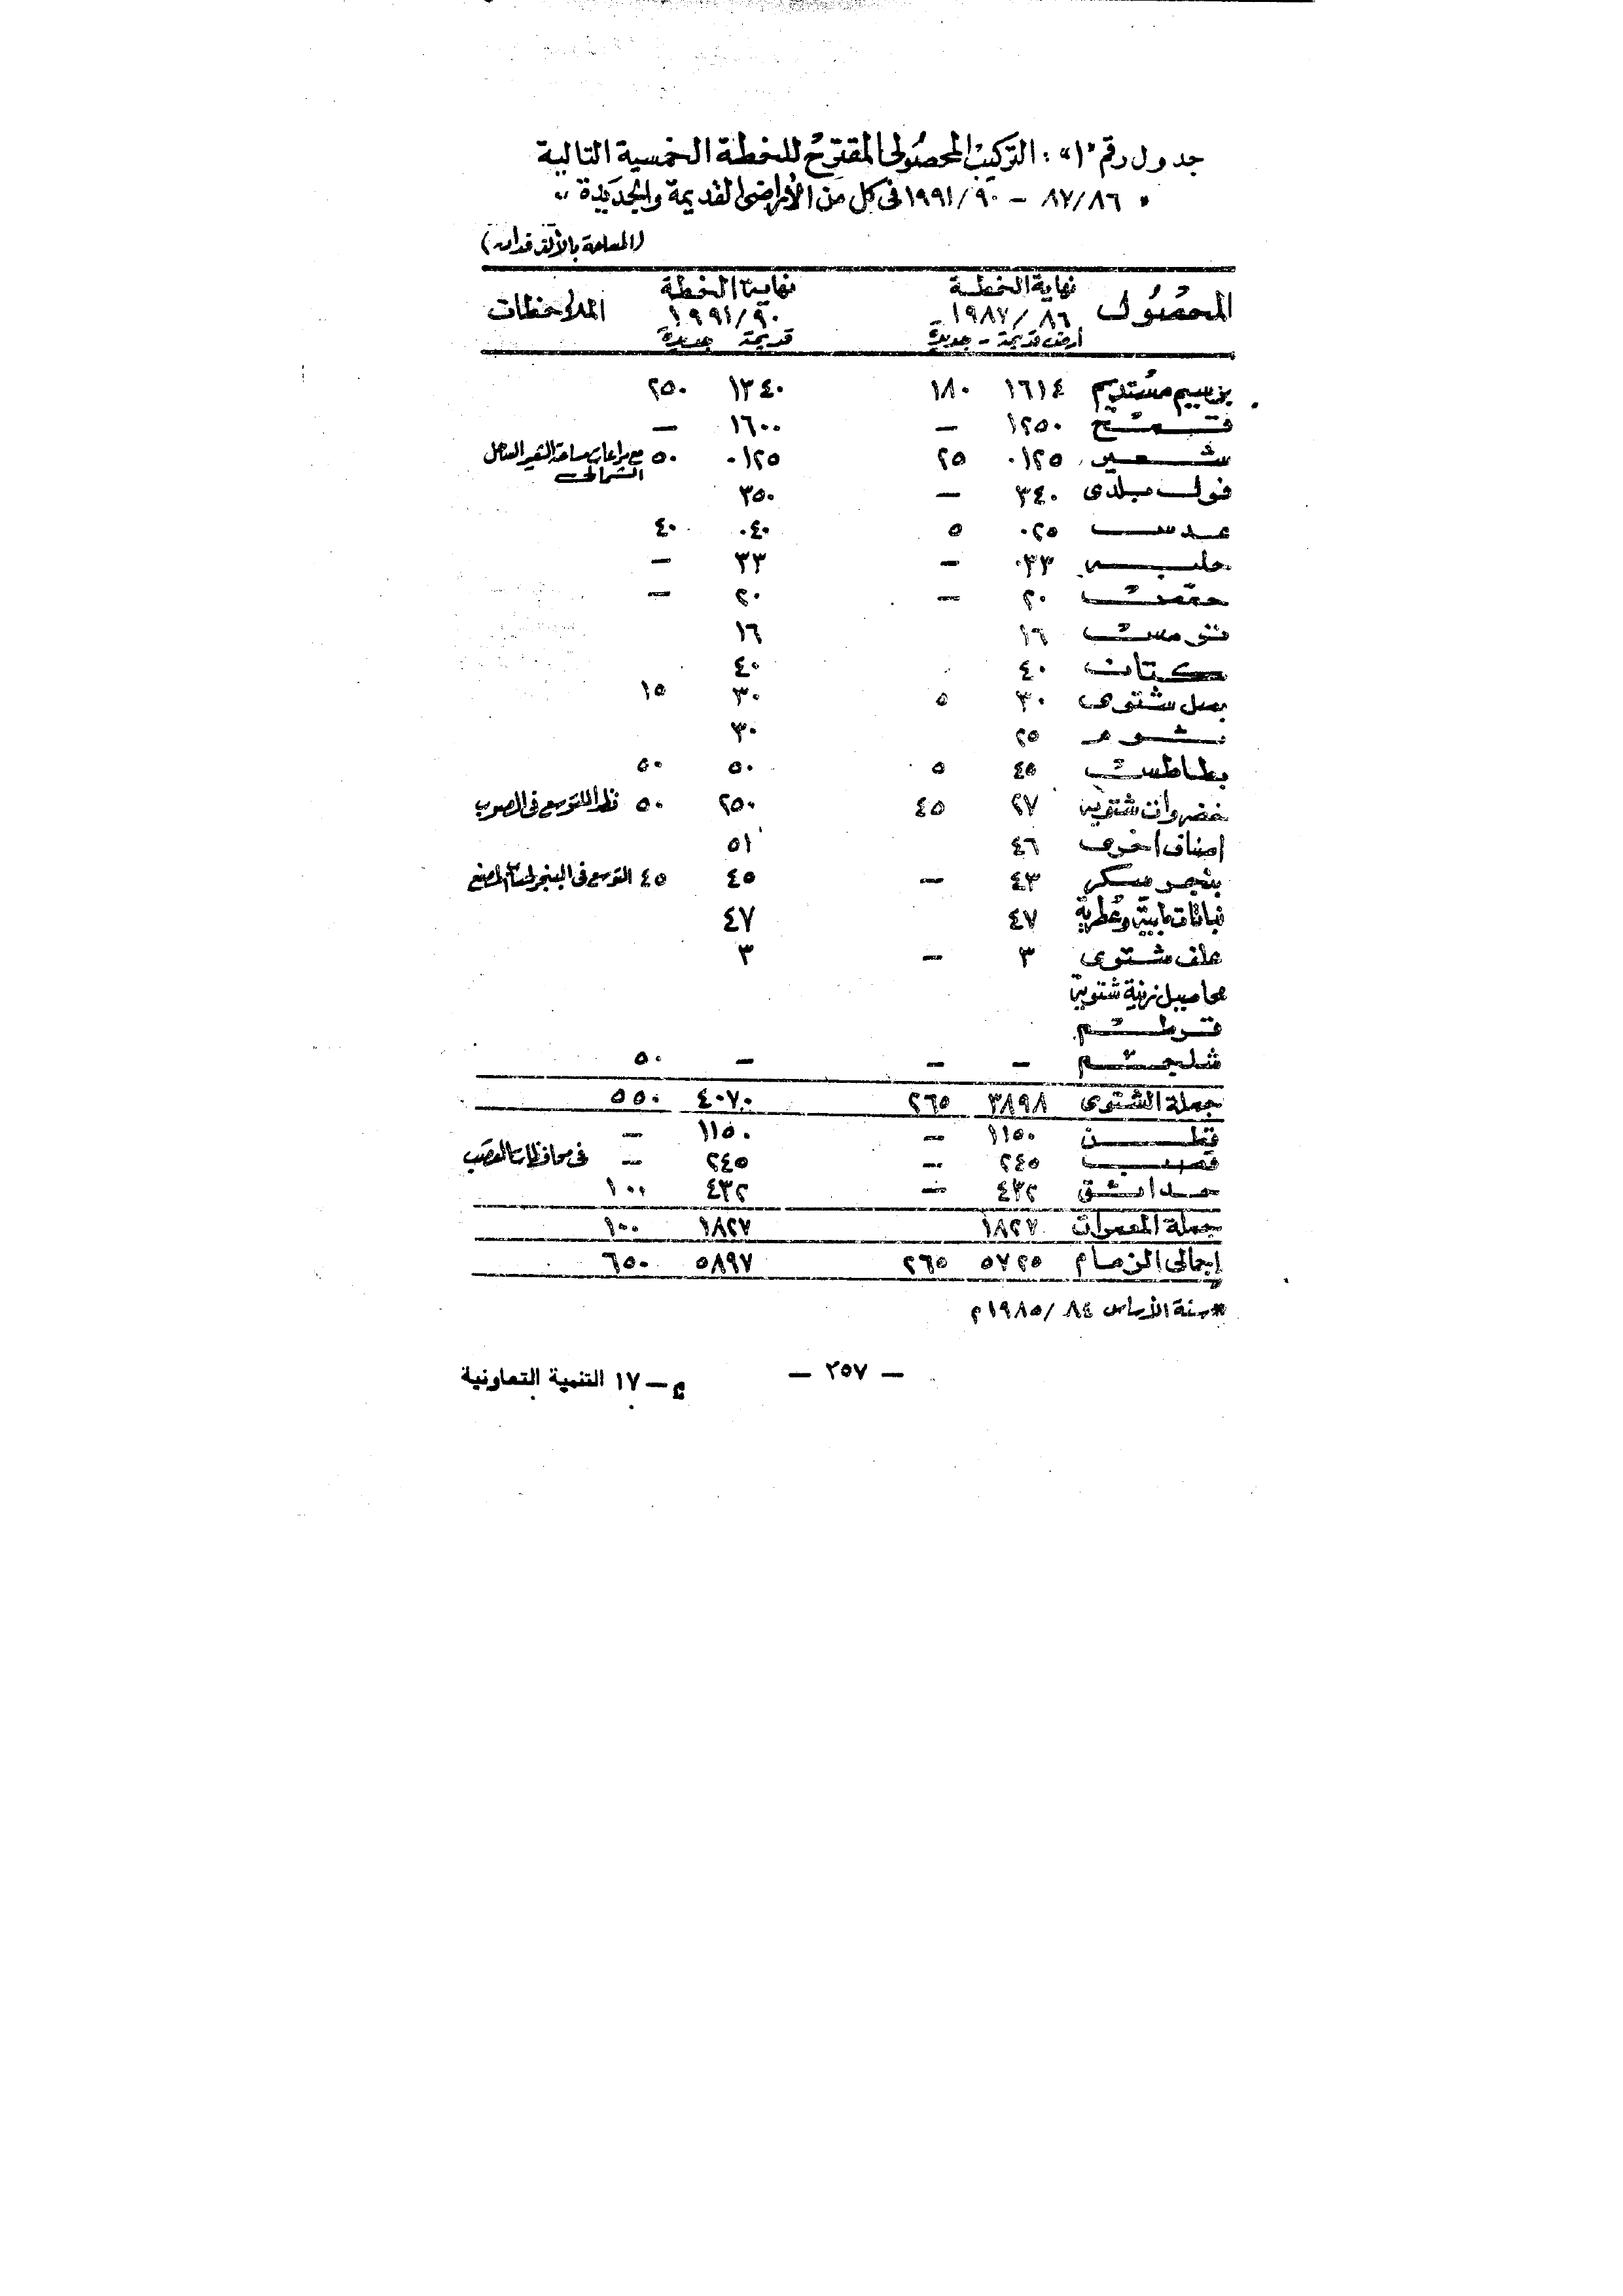 جدول رقم "١" : التركيب المحصولى المقترح للخطة الخمسية التالية
" ٨٧/٨٦ – ١٩٩١/٩٠ فى كل من الأراضى القديمة والجديدة "
(المساحة بالألف فدان)
المحصول نهاية الخطة نهاية الخطة الملاحظات
١٩٨٧/٨٦ ١٩٩١/٩٠
أرض قديمة - جديدة قديمة جديدة
برسيم مستديم ١٦١٤ ١٨٠ ١٣٤٠ ٢٥٠
قمح ١٢٥٠ – ١٦٠٠ –
شعير ٠١٢٥ ٢٥ ٠١٢٥ ٥٠ مع مراعاة مساحة الشعير الساحل
الشمالى
فول بلدى ٣٤٠ – ٣٥٠
عدس ٠٢٥ ٥ ٠٤٠ ٤٠
حلبه ٠٣٣ – ٣٣ –
حمص ٢٠ – ٢٠ –
ترمس ١٦ ١٦
كتان ٤٠ ٤٠
بصل شتوى ٣٠ ٥ ٣٠ ١٥
ثوم ٢٥ ٣٠
بطاطس ٤٥ ٥ ٥٠ ٥٠
خضروات شتوية ٢٧ ٤٥ ٢٥٠ ٥٠ نظرا للتوسع فى الصوب
اصناف اخرى ٤٦ ٥١
بنجر سكر ٤٣ – ٤٥ ٤٥ التوسع فى البنجر المصنع
نباتات طبية وعطرية ٤٧ ٤٧
علف شتوى ٣ – ٣
محاصيل زيتية شتوية
قرطم
شلجم – – – ٥٠
جملة الشتوى ٣٨٩٨ ٢٦٥ ٤٠٧٠ ٥٥٠
قطن ١١٥٠ – ١١٥٠ –
قصب ٢٤٥ – ٢٤٥ – فى محافظات القصب
حدائق ٤٣٢ – ٤٣٢ ١٠٠
جملة المعمرات ١٨٢٧ ١٨٢٧ ١٠٠
إجمالى الزمام ٥٧٢٥ ٢٦٥ ٥٨٩٧ ٦٥٠
*سنة الأساس ١٩٨٥/٨٤م
– ٢٥٧ –
م – ١٧ التنمية التعاونية